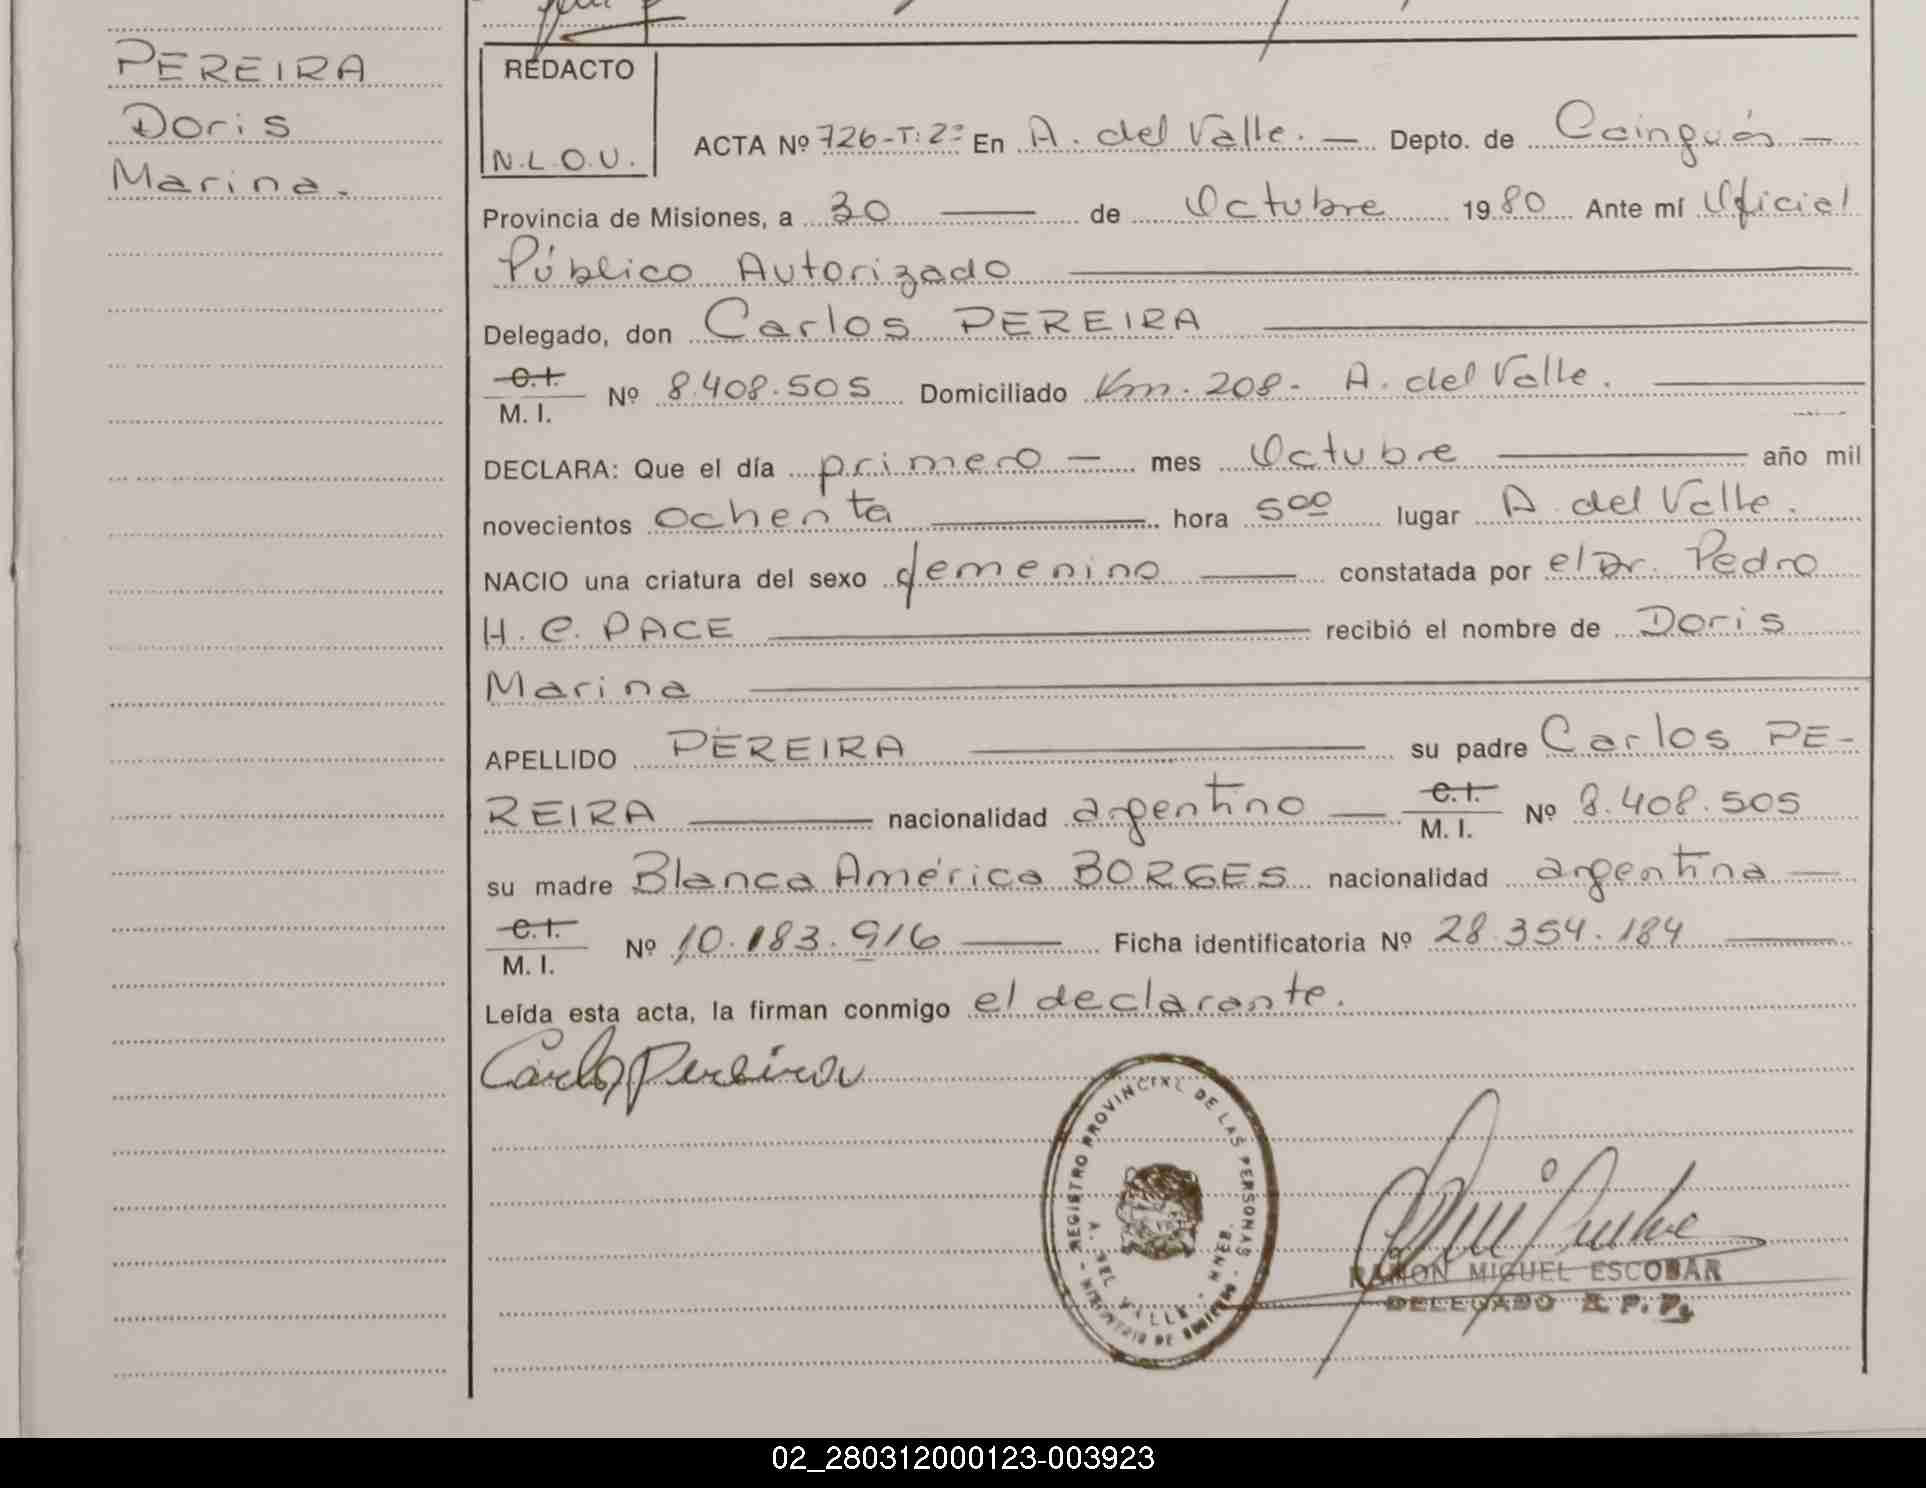 PEREIRA
Doris
Marina.
REDACTO
N.L.O.U.
ACTA Nº 726-T:2º En A. del Valle. — Depto. de Cainguás —
Provincia de Misiones, a 30 — de Octubre 1980 Ante mí Oficial
Público Autorizado —
Delegado, don Carlos PEREIRA —
C.I.
M. I. Nº 8.408.505 Domiciliado Km. 208- A. del Valle. —
DECLARA: Que el día primero — mes Octubre — año mil
novecientos ochenta — hora 5ºº lugar A. del Valle.
NACIO una criatura del sexo femenino — constatada por el Dr. Pedro
H. C. PACE — recibió el nombre de Doris
Marina —
APELLIDO PEREIRA — su padre Carlos PE-
REIRA — nacionalidad argentino — C.I. M. I. Nº 8.408.505
su madre Blanca América BORGES nacionalidad argentina —
C.I.
M. I. Nº 10.183.916 — Ficha identificatoria Nº 28.354.184 —
Leída esta acta, la firman conmigo el declarante.
Carlos Pereira
REGISTRO PROVINCIAL DE LAS PERSONAS
A. DEL VALLE
RAMON MIGUEL ESCOBAR
DELEGADO R. P. P.
02_280312000123-003923